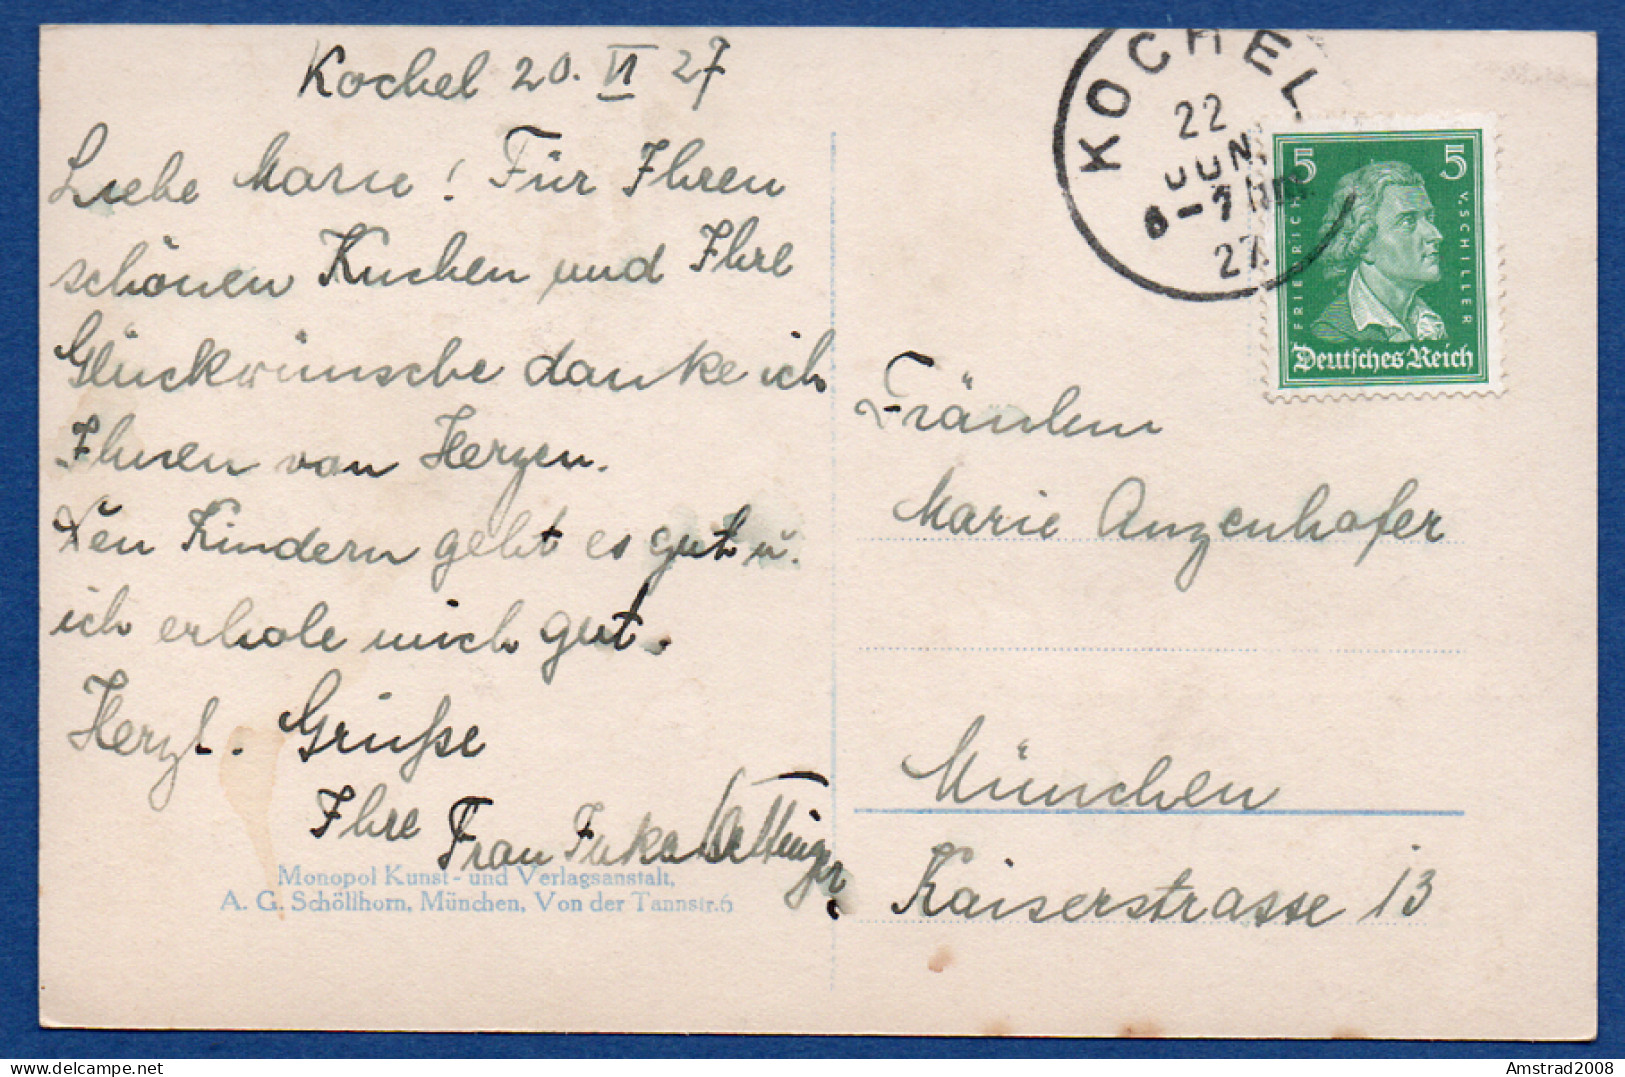 Kochel 20. VI 27
Liebe Marie! Für Ihren
schönen Kuchen und Ihre
Glückwünsche danke ich
Ihnen von Herzen.
Den Kindern geht es gut u.
ich erhole mich gut.
Herzl. Grüße
Ihre Frau
Monopol Kunst- und Verlagsanstalt,
A. G. Schöllhorn, München, Von der Tannstr.6
KOCHEL
22
JUN.
6-7
27
5 5
FRIEDRICH
V. SCHILLER
Deutsches Reich
Fräulein
Marie Anzenhofer
München
Kaiserstrasse 13
Amstrad2008